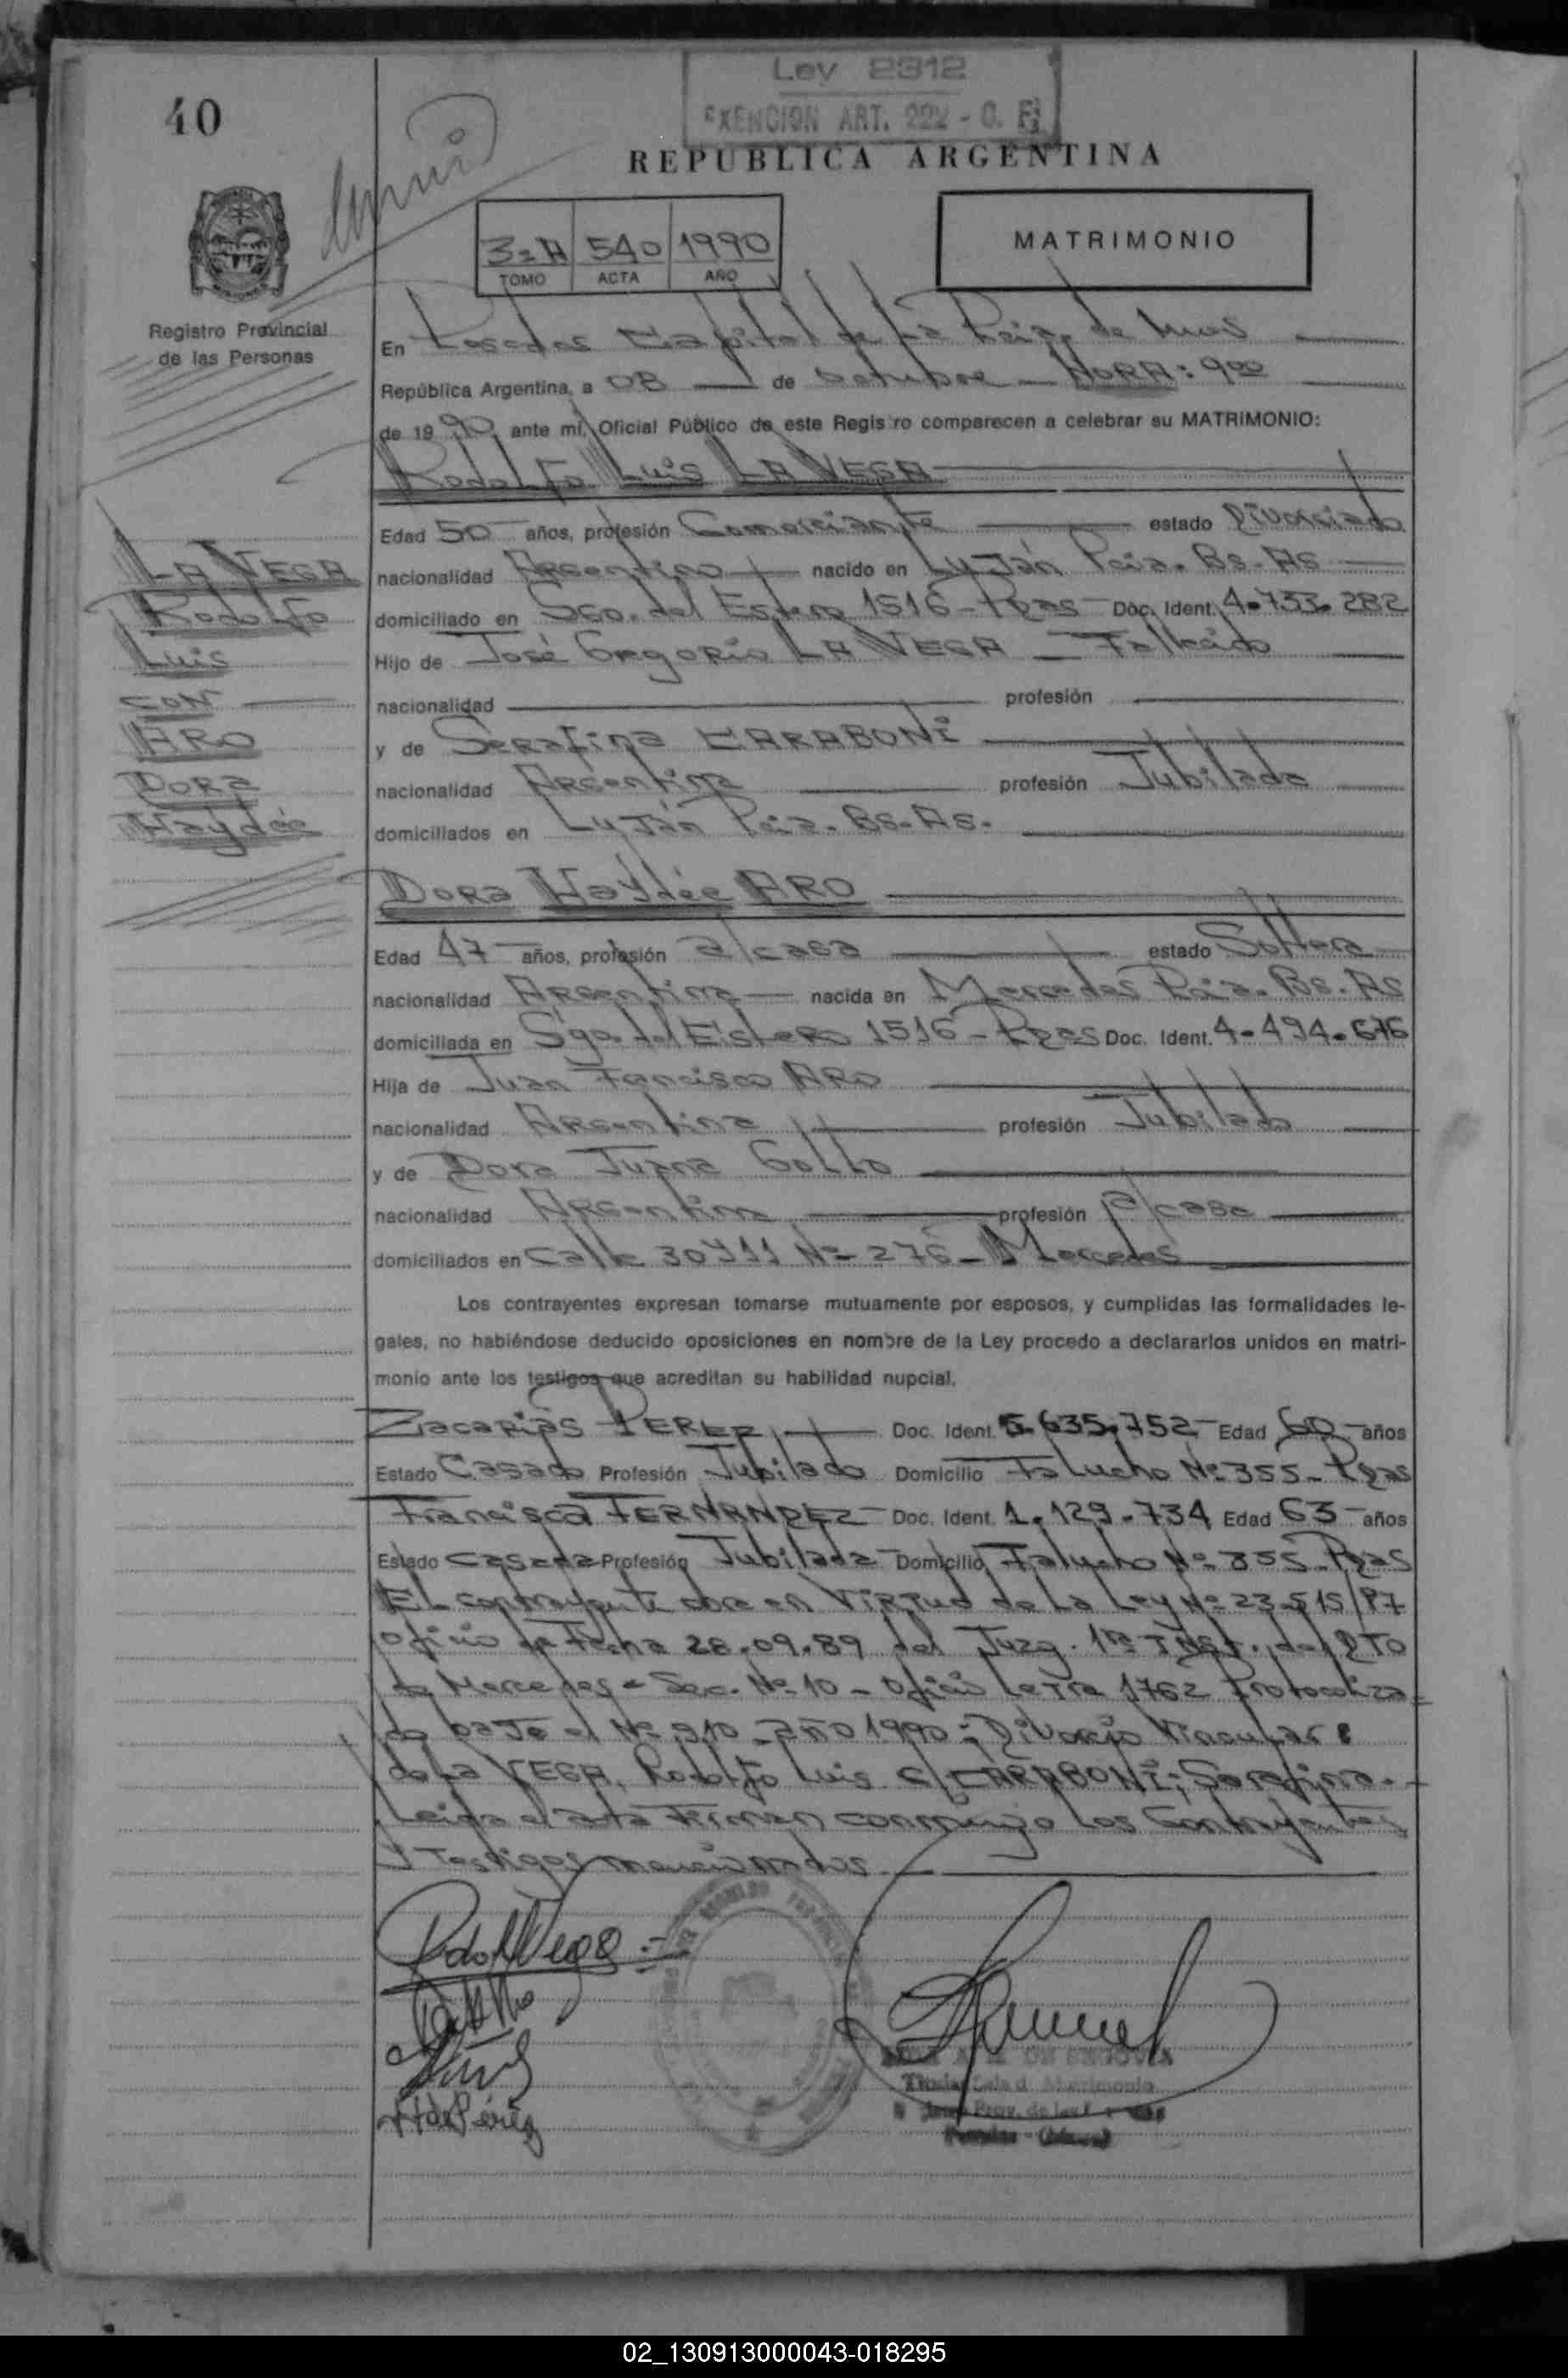 Ley 2312
EXENCION ART. 222 - C. F.
40
REPUBLICA ARGENTINA
3=A 540 1990
TOMO ACTA AÑO
MATRIMONIO
Registro Provincial
de las Personas
En Posadas Capital de La Pcia. de Mnes
República Argentina, a 08 de Octubre - HORA: 900
de 1990, ante mí, Oficial Público de este Registro comparecen a celebrar su MATRIMONIO:
Rodolfo Luis LA VEGA
Edad 50 años, profesión Comerciante estado Divorciado
nacionalidad Argentino nacido en Luján Pcia. Bs. As
domiciliado en Sgo. del Estero 1516 - Pdas Doc. Ident. 4.733.282
Hijo de José Gregorio LA VEGA - Fallecido
nacionalidad profesión
y de Serafina CARABONI
nacionalidad Argentina profesión Jubilada
domiciliados en Luján Pcia. Bs. As.
LA VEGA
Rodolfo
Luis
CON
ARO
Dora
Haydée
Dora Haydée ARO
Edad 47 años, profesión a/casa estado Soltera
nacionalidad Argentina nacida en Mercedes Pcia. Bs. As
domiciliada en Sgo. del Estero 1516 - Pdas Doc. Ident. 4.494.676
Hija de Juan Francisco ARO
nacionalidad Argentina profesión Jubilado
y de Dora Juana Gollo
nacionalidad Argentina profesión a/casa
domiciliados en Calle 30 y 11 Nº 276 - Mercedes
Los contrayentes expresan tomarse mutuamente por esposos, y cumplidas las formalidades le-
gales, no habiéndose deducido oposiciones en nombre de la Ley procedo a declararlos unidos en matri-
monio ante los testigos que acreditan su habilidad nupcial.
Zacarias PEREZ Doc. Ident. 5.635.752 Edad 60 años
Estado Casado Profesión Jubilado Domicilio Falucho Nº 355 - Pdas
Francisca FERNANDEZ Doc. Ident. 1.129.734 Edad 63 años
Estado Casada Profesión Jubilada Domicilio Falucho Nº 355 - Pdas
El contrayente obra en Virtud de La Ley Nº 23.515/87
Oficio de Fecha 28.09.89 del Juzg. 1ra Inst. del DTO
de Mercedes - Sec. Nº 10 - Oficio Letra 1762 Protocoliza-
do bajo el Nº 910 - año 1990: Divorcio Vincular:
de La VEGA, Rodolfo Luis c/ CARABONI; Serafina.
Leida el acta Firman conmigo Los Contrayentes
y Testigos mencionados
DE SEGOVIA
02_130913000043-018295